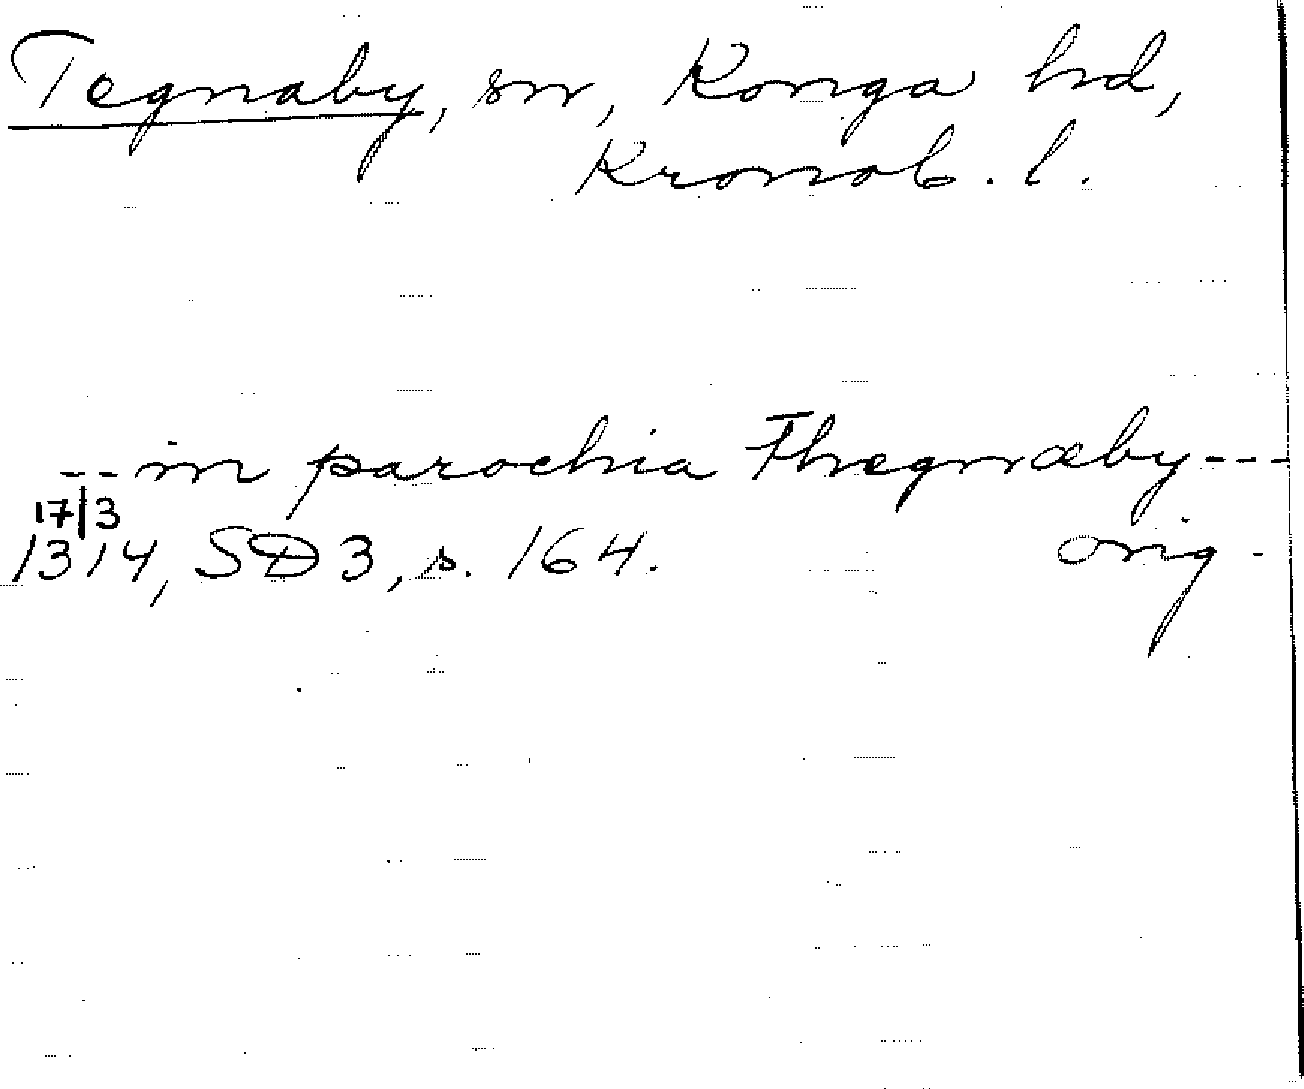 Tegnaby, sn, Konga hd,
Kronob. l.
-- in parochia Thegnæby ---
17/3
1314, SD 3, s. 164. orig -